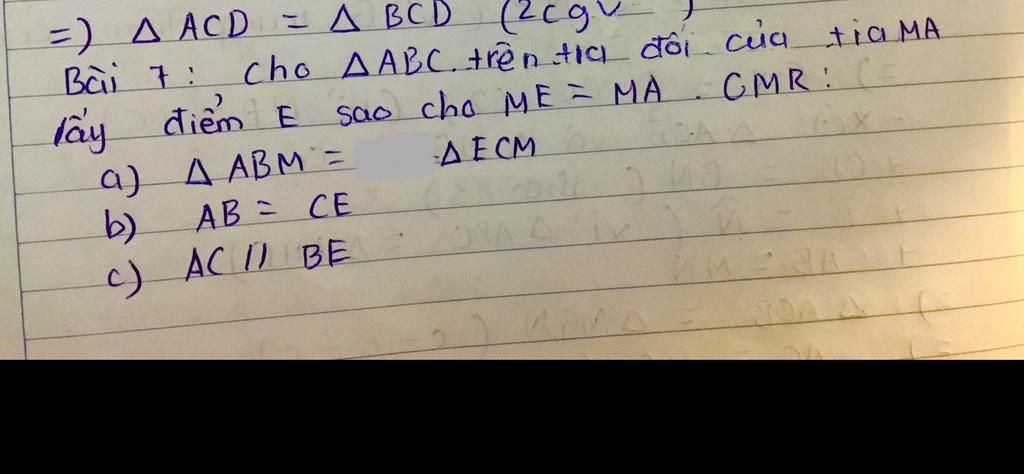 =) Δ ACD = Δ BCD (2cgv )
Bài 7 : Cho ΔABC. trên tia đối của tia MA
lấy điểm E sao cho ME = MA . CMR :
a) Δ ABM = ΔECM
b) AB = CE
c) AC // BE